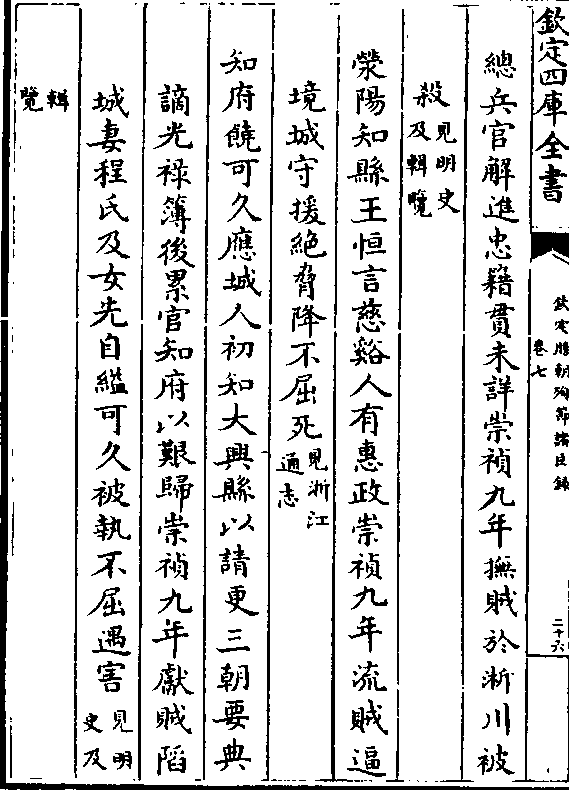 欽定四庫全書
欽定勝朝殉節諸臣錄
卷七
二十六
總兵官解進忠籍貫未詳崇禎九年撫賊於淅川被
殺見明史及輯覽
滎陽知縣王恒言慈谿人有惠政崇禎九年流賊逼
境城守援絕脅降不屈死見浙江通志
知府饒可久應城人初知大興縣以請更三朝要典
謫光祿簿後累官知府以艱歸崇禎九年獻賊陷
城妻程氏及女先自縊可久被執不屈遇害見明史及
輯覽